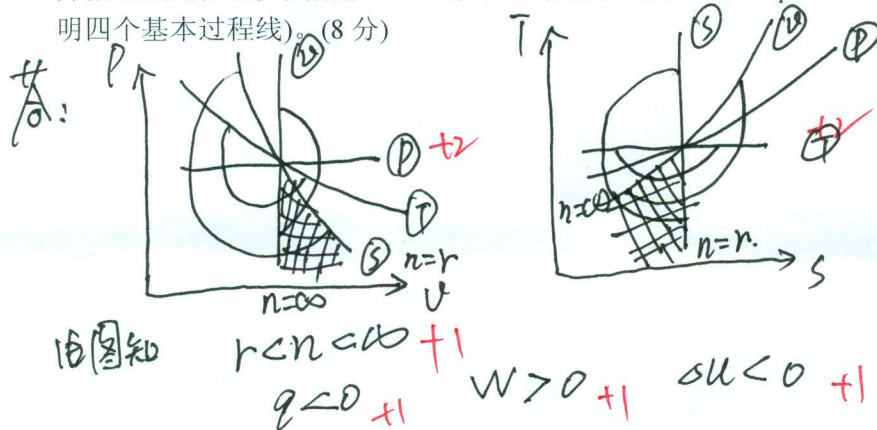 明四个基本过程线)。(8 分)
答:
P
v
P
+2
T
S
n=r
n=∞
v
T
S
v
P
T
+2
n=∞
n=r.
S
由图知 r<n<∞ +1
q<0 +1 W>0 +1 Δu<0 +1